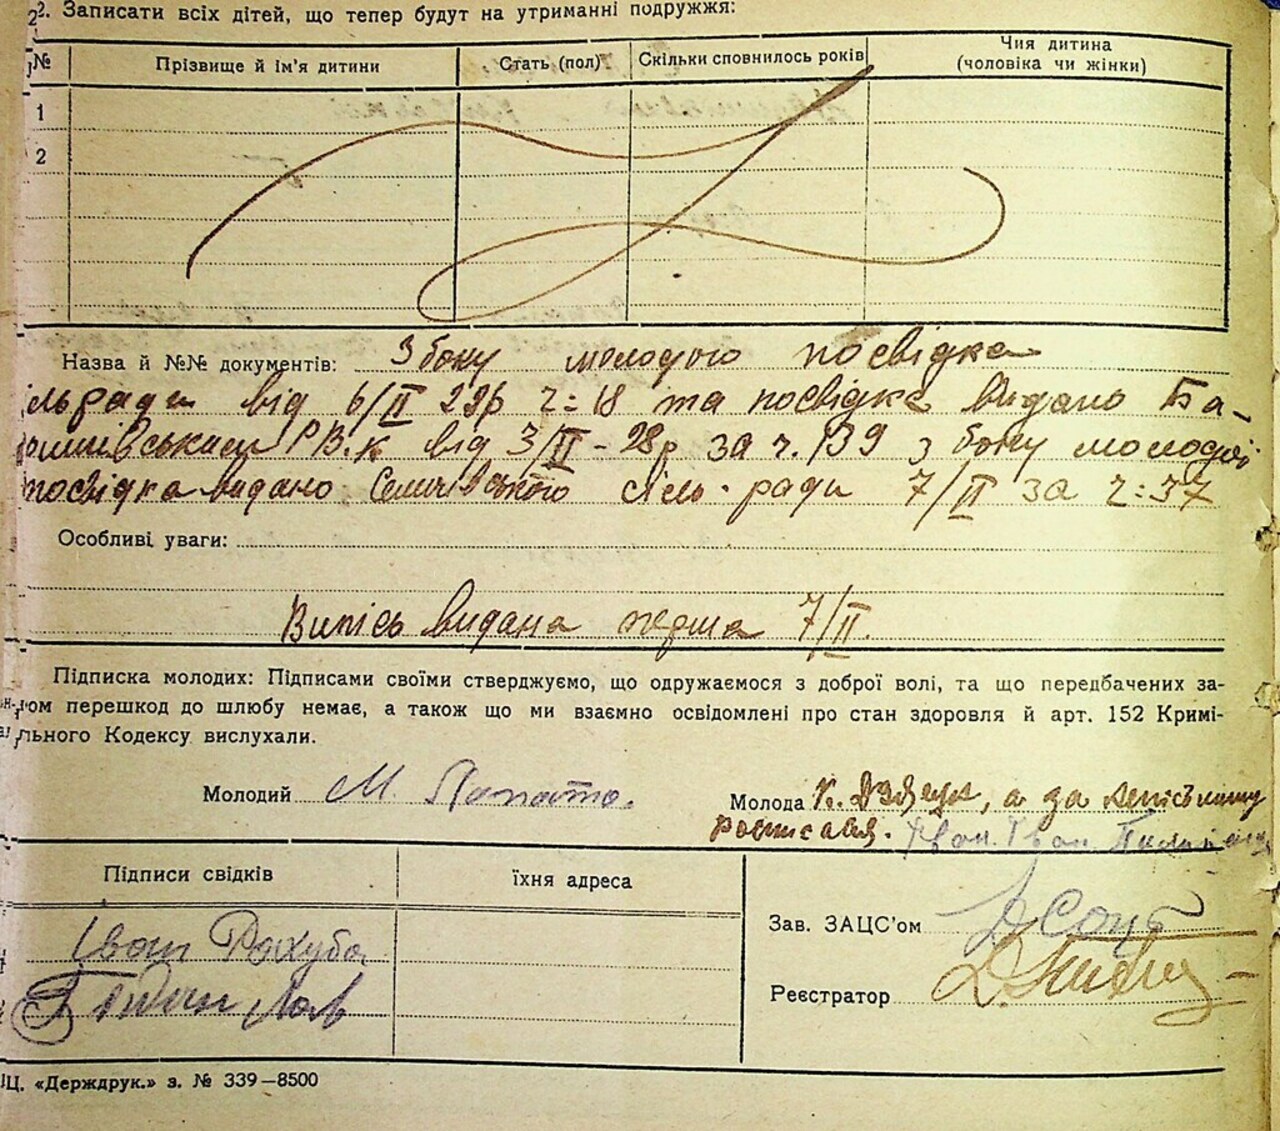 22. Записати всіх дітей, що тепер будут на утриманні подружжя:
№ Прізвище й ім'я дитини Стать (пол) Скільки сповнилось років Чия дитина (чоловіка чи жінки)
1
2
Назва й №№ документів: З боку молодого посвідка
ільради від 6/II 29р ч=18 та посвідка видано Ба-
РВ.К від 3/II-28р за ч. 139 з боку молодої
посвідка видано Семичівського сіль. ради 7/II за ч:37
Особливі уваги:
Випісь видана перша 7/II.
Підписка молодих: Підписами своїми стверджуємо, що одружаємося з доброї волі, та що передбачених за-
ном перешкод до шлюбу немає, а також що ми взаємно освідомлені про стан здоровля й арт. 152 Кримі-
льного Кодексу вислухали.
Молодий М. Лопато.
Молода К. , а за непісьмену
росписався. Іван. Іван.
Підписи свідків їхня адреса
Іван Рохуба
Зав. ЗАЦС'ом
Реєстратор
ІЦ. «Держдрук.» з. № 339—8500